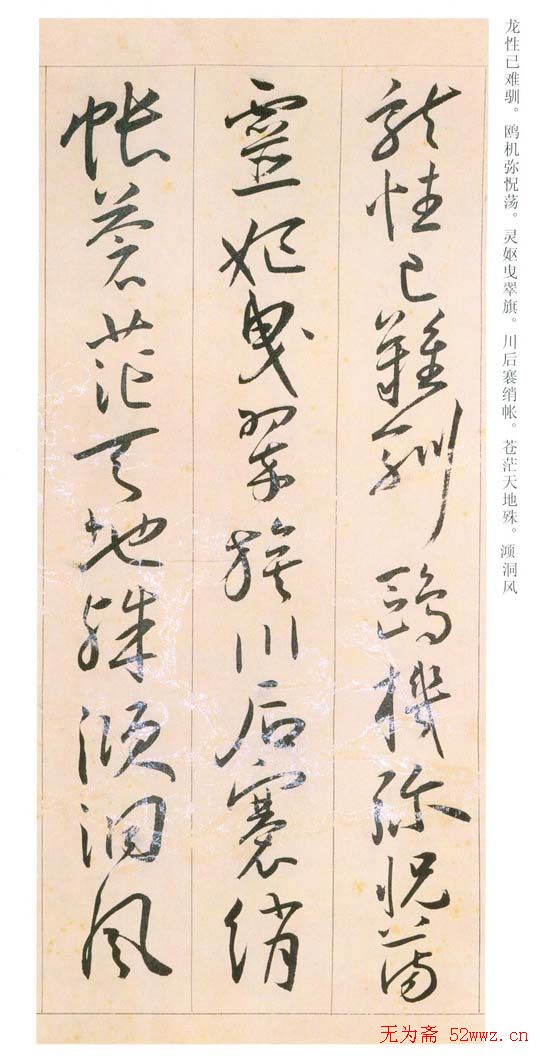 龙性已难驯。鸥机弥怳荡。灵妪曳翠旗。川后褰绡帐。苍茫天地殊。澒洞风
龍性已難馴鷗機弥怳蕩
靈妪曳翠旗川后褰綃
帳蒼茫天地殊澒洞風
无为斋 52wwz.cn